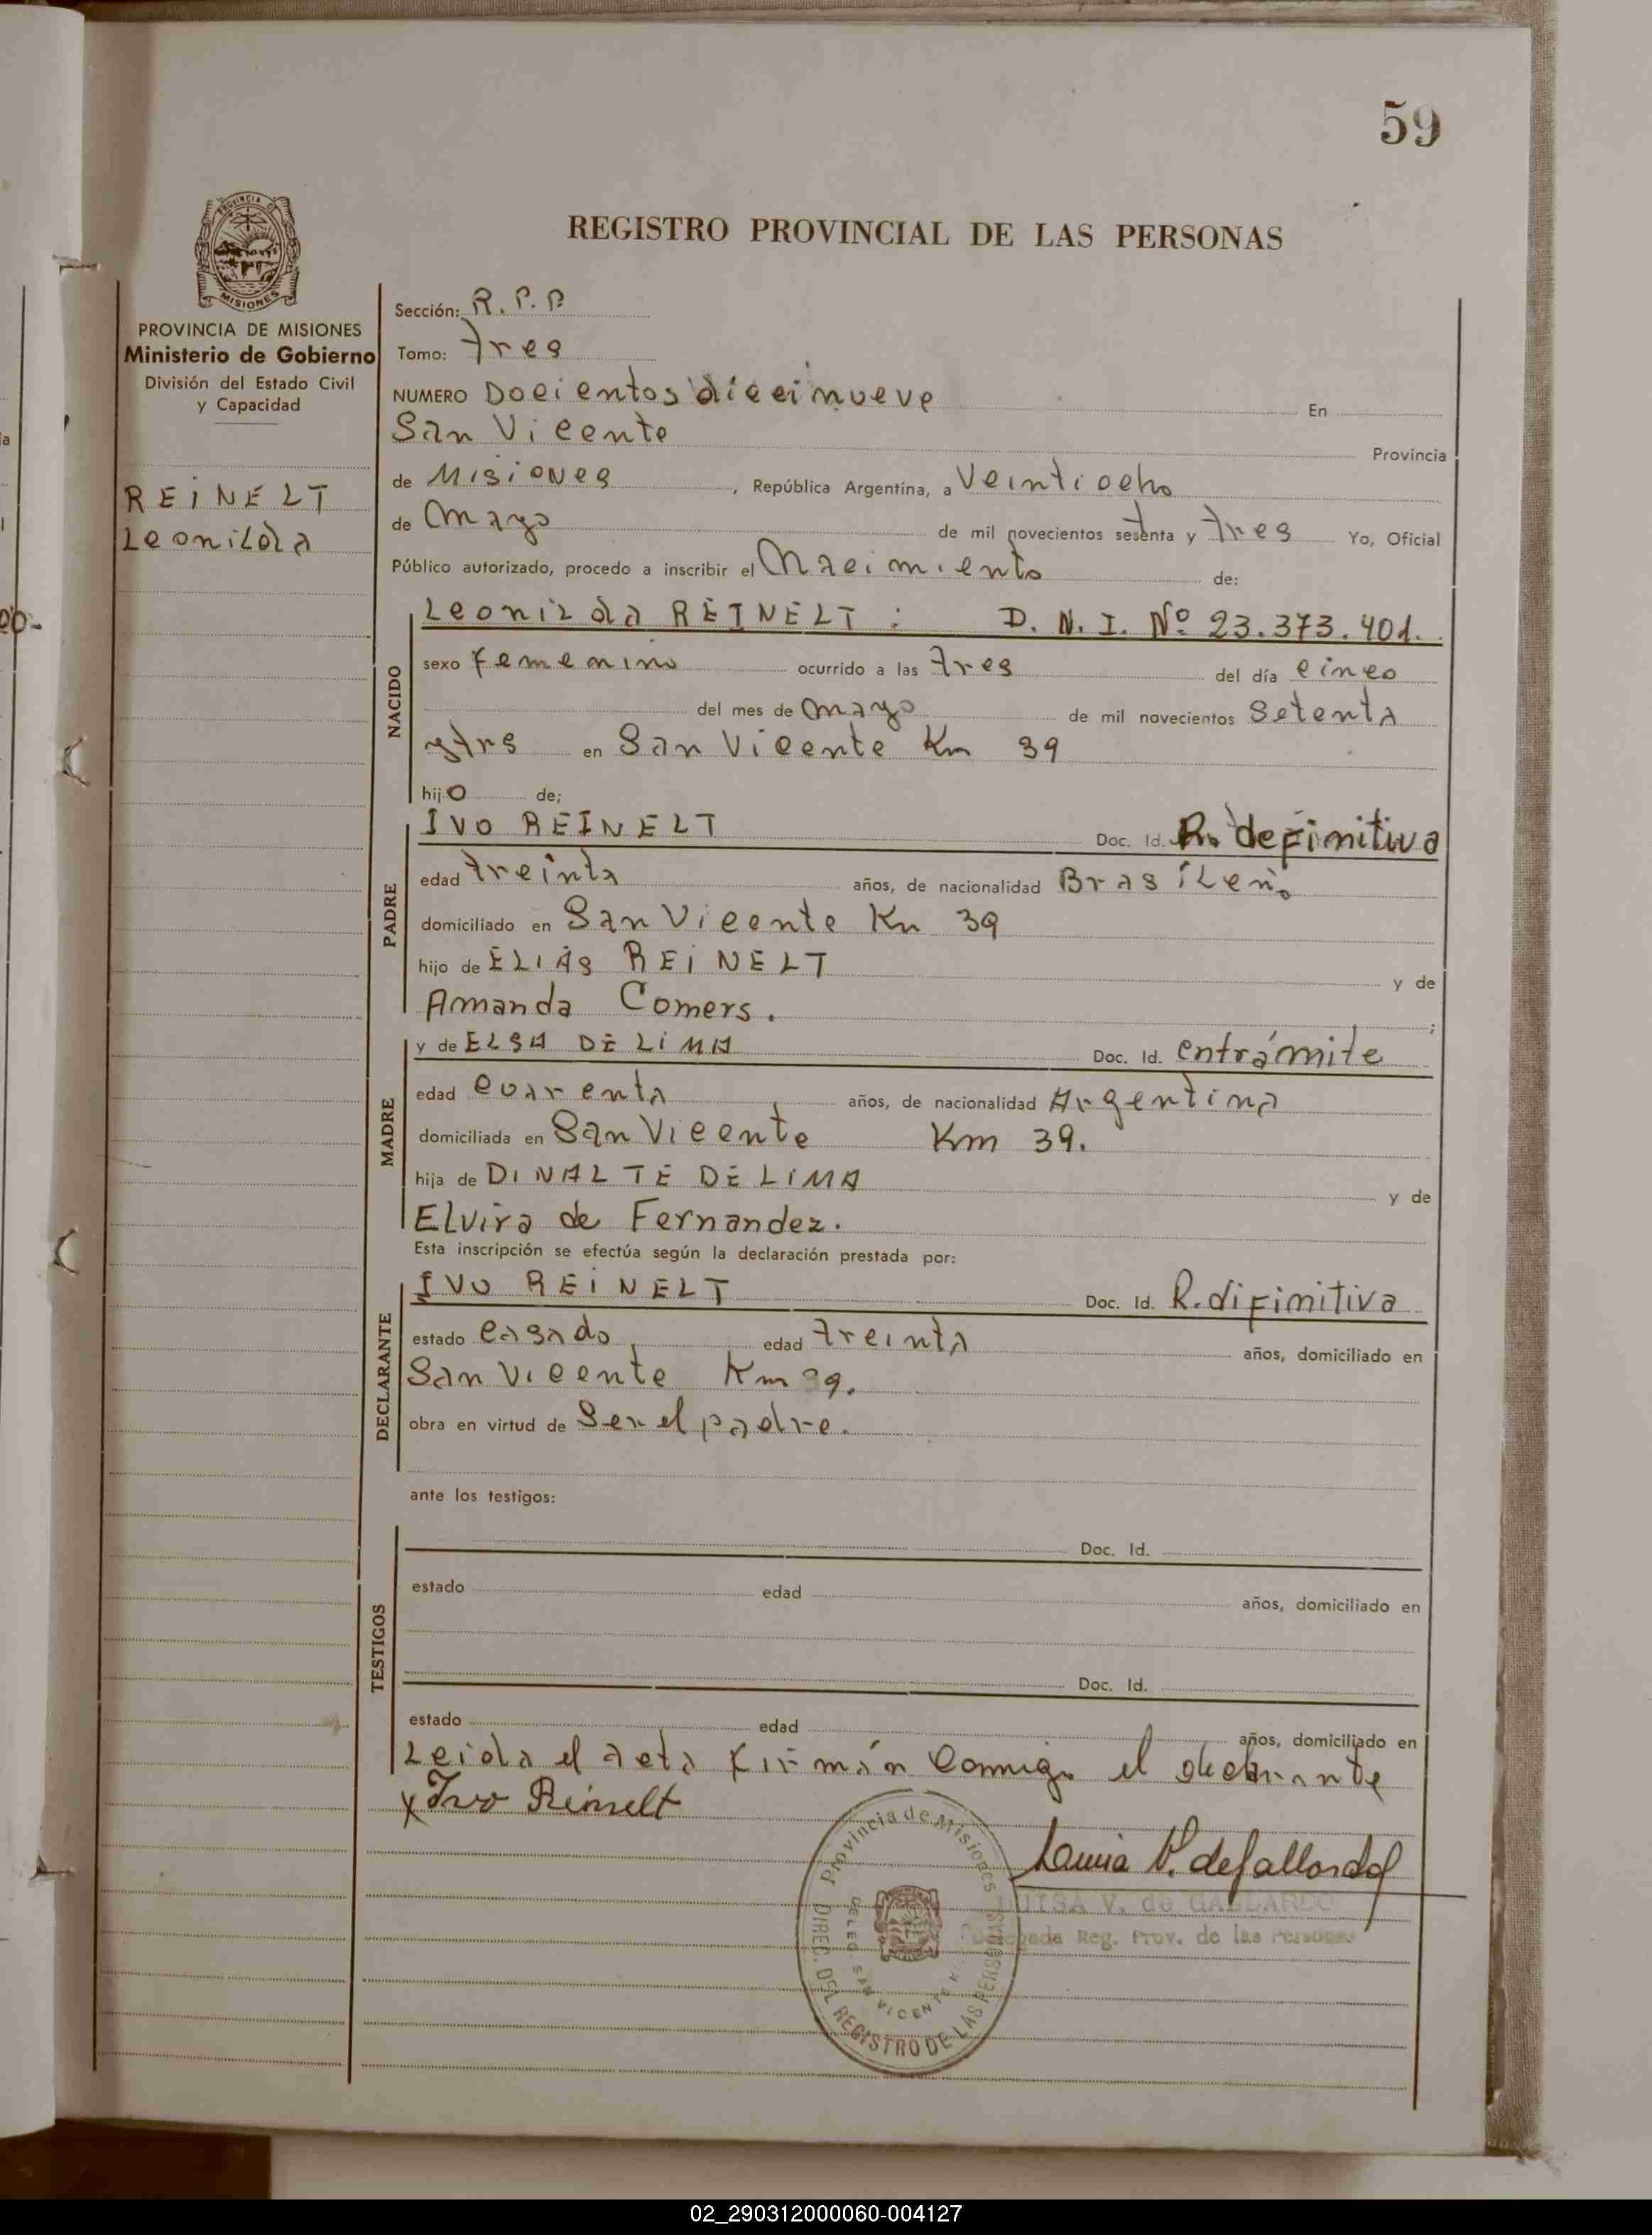 59
PROVINCIA DE
MISIONES
REGISTRO PROVINCIAL DE LAS PERSONAS
PROVINCIA DE MISIONES
Ministerio de Gobierno
División del Estado Civil
y Capacidad
REiNELT
Leonilda
Sección: R. P. P
Tomo: tres
NUMERO Docientos dicei nueve En
San Vicente Provincia
de Misiones, República Argentina, a Veintiocho
de mayo de mil novecientos setenta y tres Yo, Oficial
Público autorizado, procedo a inscribir el Nacimiento de:
NACIDO
Leonilda REINELT : D. N. I. Nº 23.373.401.
sexo femenino ocurrido a las tres del día cinco
del mes de mayo de mil novecientos setenta
y trs en San Vicente Km 39
hijo de;
PADRE
IVO REINELT Doc. Id. R. definitiva
edad treinta años, de nacionalidad Brasileño
domiciliado en San Vicente Km 39
hijo de ELIAS REiNELT y de
Amanda Comers. ;
MADRE
y de ELSA DE LiMA Doc. Id. entrámite
edad cuarenta años, de nacionalidad Argentina
domiciliada en San Vicente Km 39.
hija de DINALTE DE LiMA y de
Elvira de Fernandez.
Esta inscripción se efectúa según la declaración prestada por:
DECLARANTE
IVO REiNELT Doc. Id. R. difinitiva
estado casado edad treinta años, domiciliado en
San Vicente Km 39.
obra en virtud de Ser el padre.
ante los testigos:
TESTIGOS
Doc. Id.
estado edad años, domiciliado en
Doc. Id.
estado edad años, domiciliado en
Leida el acta firmán conmigo el declarante
x Ivo Reinelt
Provincia de Misiones
DIREC. DEL REGISTRO DE LAS PERSONAS
DELEG. SAN VICENTE
Luisa V. de Gallardo
LUISA V. de GALLARDO
Delegada Reg. Prov. de las Personas
02_290312000060-004127